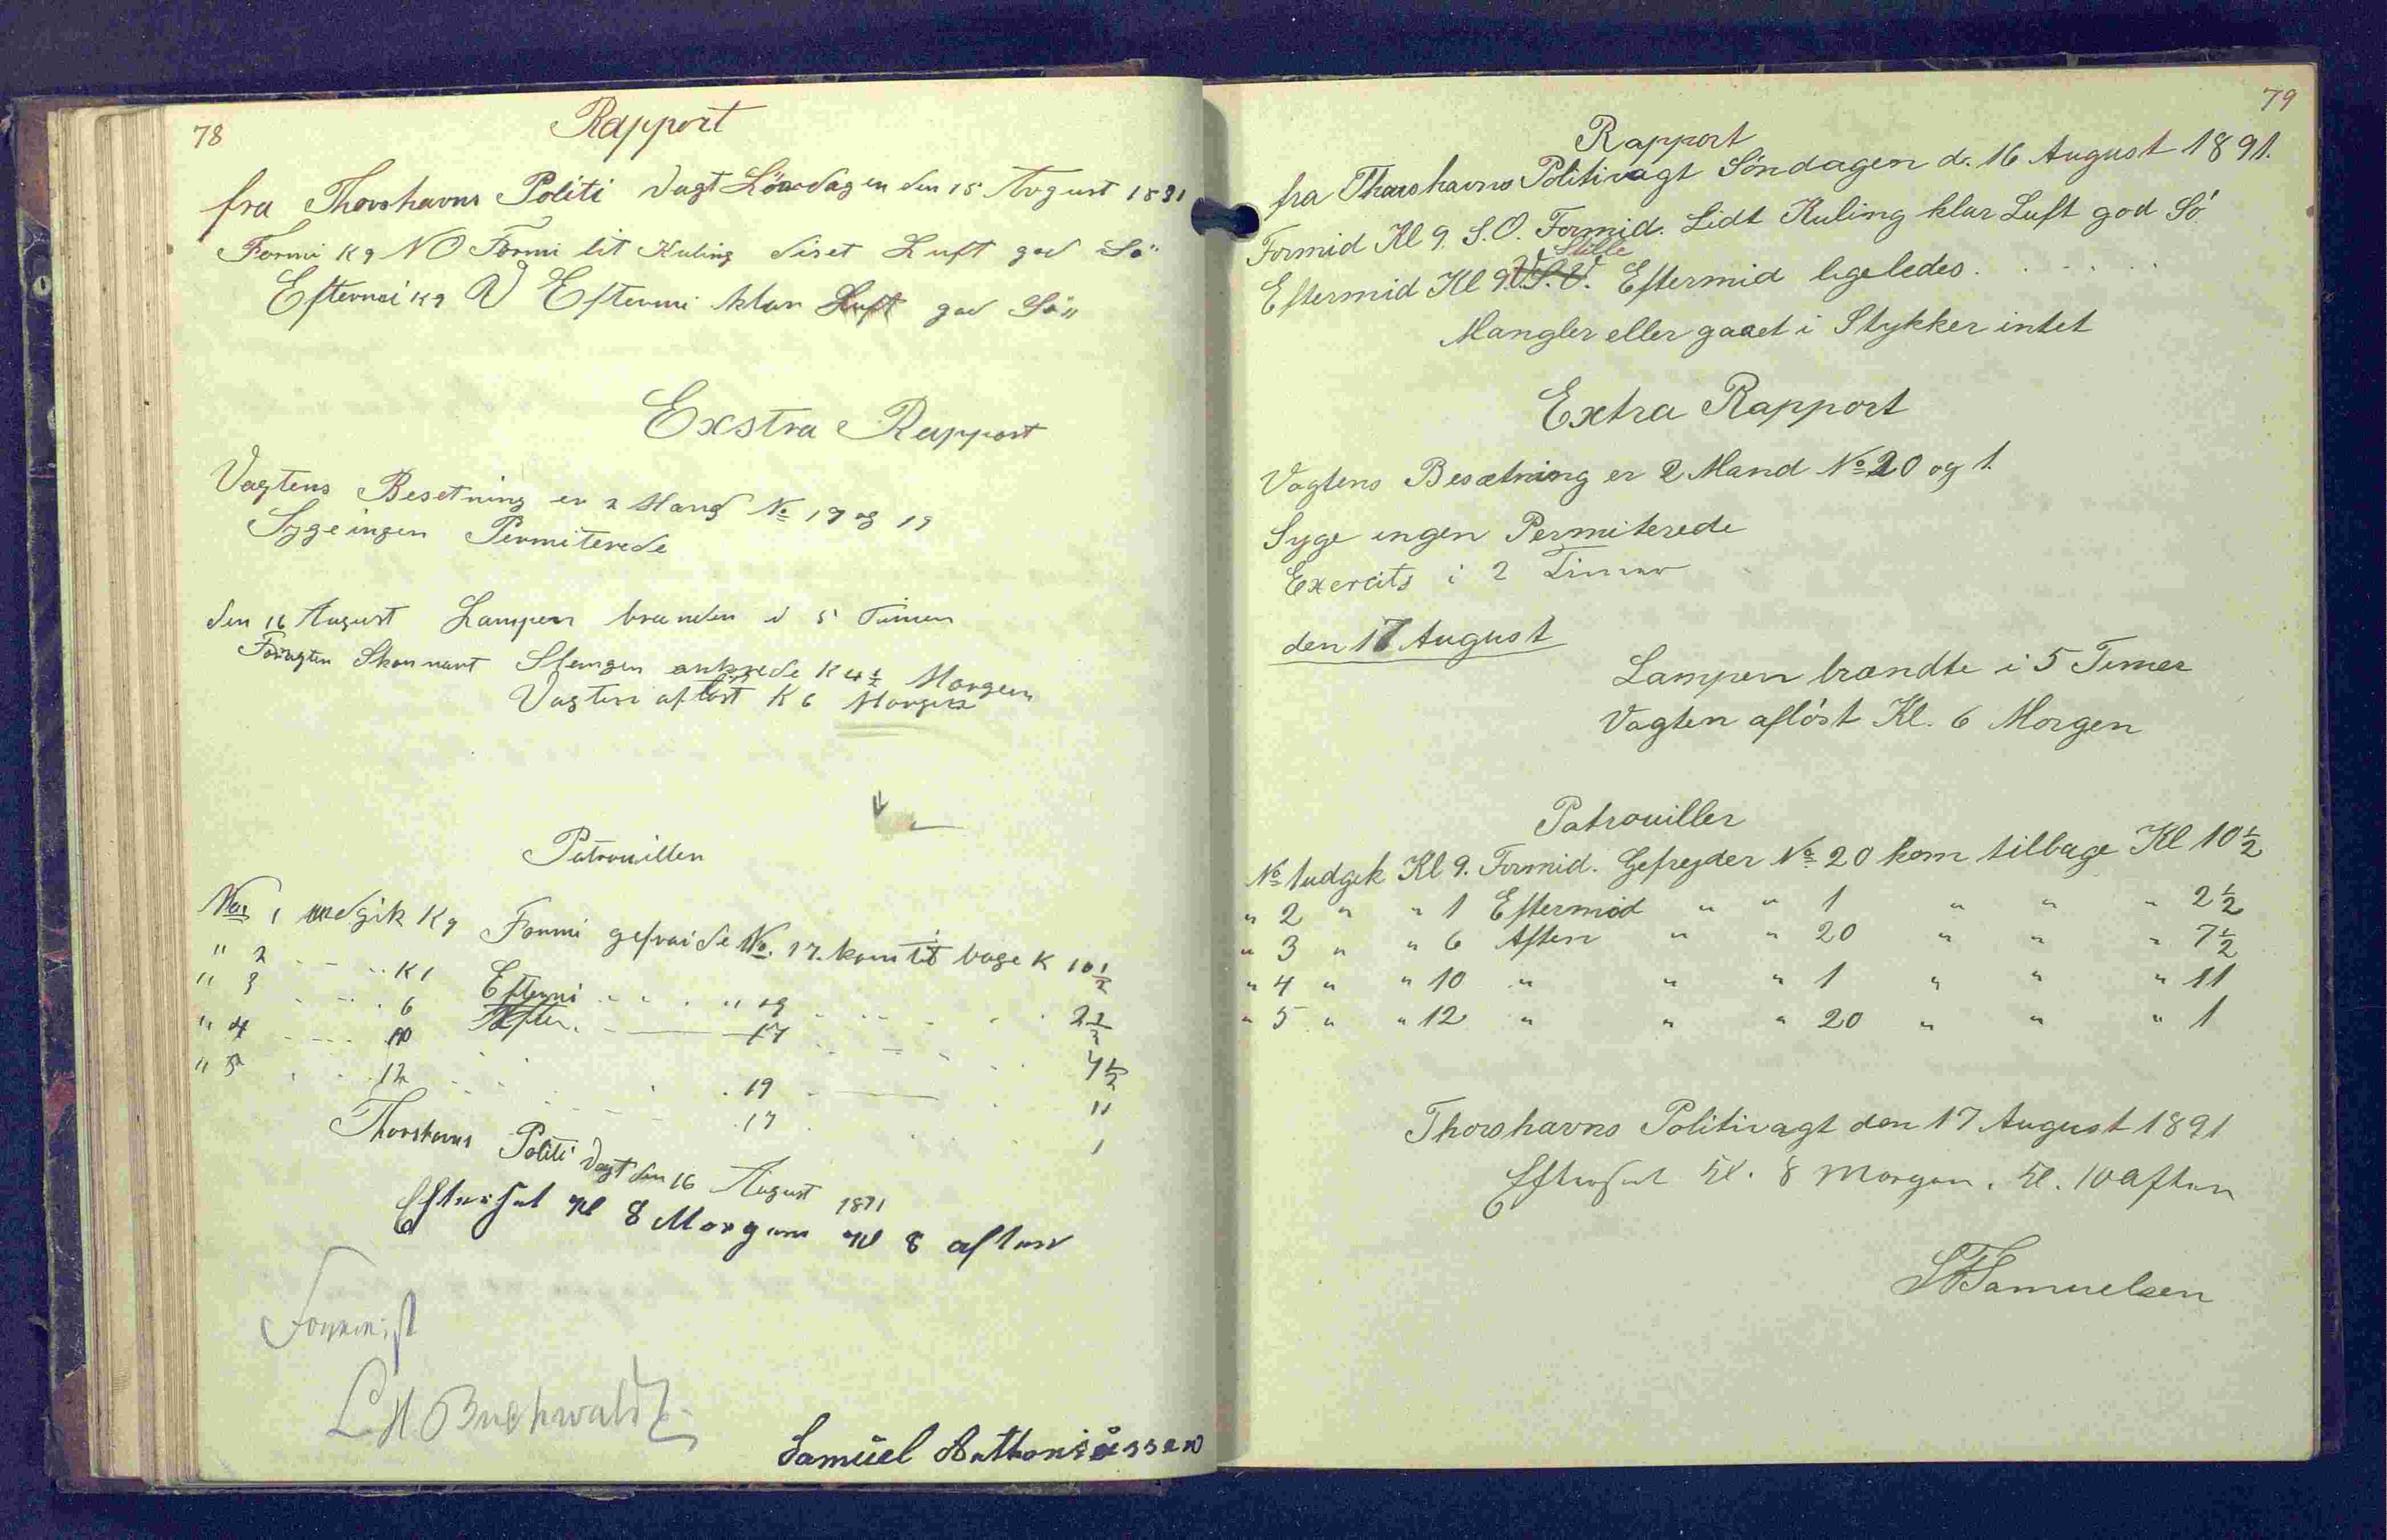 78
Rapport
fra Thorshavns Politi Vagt Löerdagen den 15 August 1891
Formi K 9 NO Formi lit Kuling diset Luft god Sö"
Eftermi K 9 V Eftermi klar Luft god Sö"
Exstra Rapport
Vagtens Besetning er 2 Mand No 17 og 19
Syge ingen Permiterede
den 16 August Lampen branden i 5 Timer
Skonnart ankrede K 4½ Morgen
Vagten aflöst K 6 Morgen
Patrouillen
No 1 udgik K 9 Formi gefraide No. 17. kom til bage K 10½
" 2 " K 1 Eftermi " 19 2½
" 3 6 Aften 17 7½
" 4 10 19 11
" 5 12 17 1
Thorshavns Politi Vagt den 16 August 1891
Efterset Kl 8 Morgen Kl 8 aften
L. H Buchwaldt
Samuel Anthoniussen
79
Rapport
fra Thorshavns Politivagt Söndagen d. 16 August 1891.
Formid Kl 9. S.O. Formid. Lidt Kuling klar Luft god Sö
Stille
Eftermid Kl 9. V.S.V. Eftermid ligeledes.
Mangler eller gaaet i Stykker intet
Extra Rapport
Vagtens Besætning er 2 Mand No 20 og 1.
Syge ingen Permiterede
Exercits i 2 Timer
den 17 August
Lampen brændte i 5 Timer
Vagten aflöst Kl. 6 Morgen
Patrouiller
No 1 udgik Kl 9. Formid. Gefrejder No 20 kom tilbage Kl 10½
" 2 " " 1 Eftermid " " 1 " " " 2½
" 3 " " 6 Aften " " 20 " " " 7½
" 4 " " 10 " " " 1 " " " 11
" 5 " " 12 " " " 20 " " " 1
Thorshavns Politivagt den 17 August 1891
Efterset Kl. 8 Morgen. Kl. 10 aften
Samuelsen